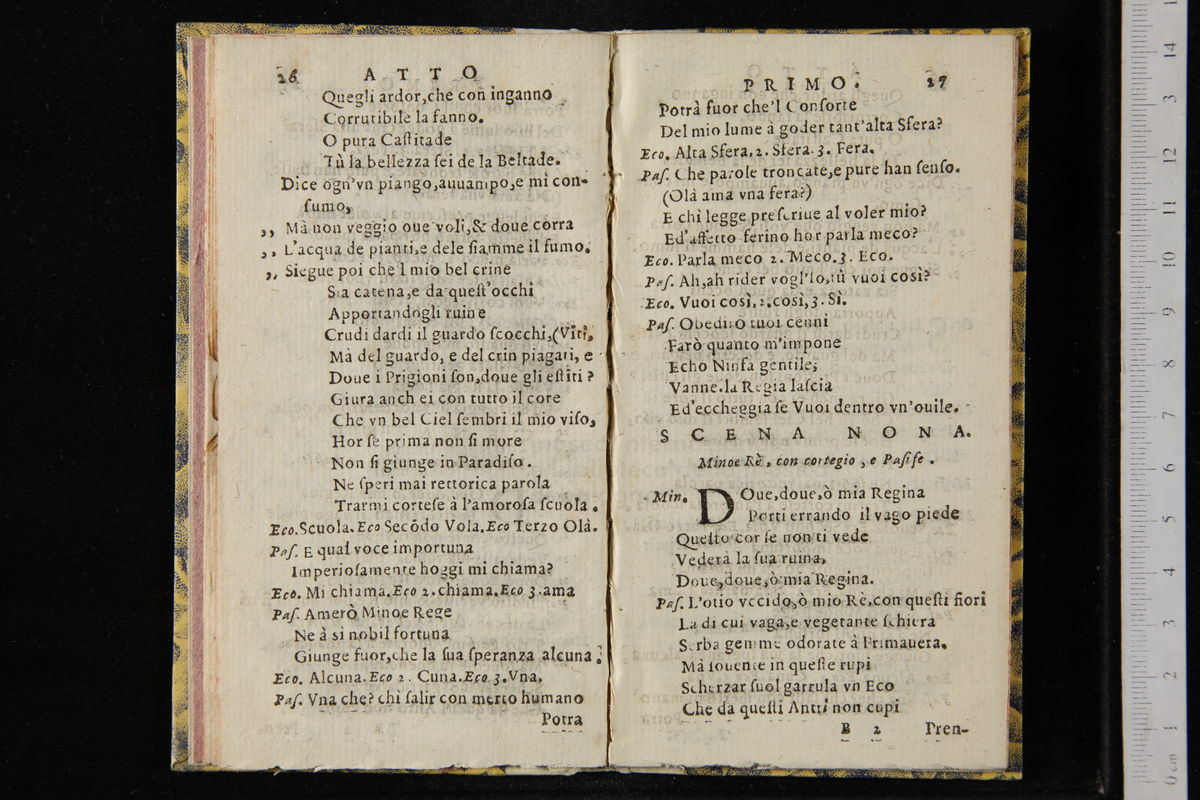 26 ATTO
Quegli ardor,che con inganno
Corrutibile la fanno.
O pura Caſtitade
Tù la bellezza ſei de la Beltade.
Dice ogn'vn piango,auuampo,e mi con-
ſumo,
,, Mà non veggio oue voli,& doue corra
,, L'acqua de pianti,e dele fiamme il fumo.
,, Siegue poi che'l mio bel crine
Sia catena,e da queſt'occhi
Apportandogli ruine
Crudi dardi il guardo ſcocchi,(Viti,
Mà del guardo, e del crin piagati, e
Doue i Prigioni ſon,doue gli eſtiti ?
Giura anch ei con tutto il core
Che vn bel Ciel ſembri il mio viſo,
Hor ſe prima non ſi more
Non ſi giunge in Paradiſo.
Ne ſperi mai rettorica parola
Trarmi corteſe à l'amoroſa ſcuola.
Eco.Scuola.Eco Secōdo Vola.Eco Terzo Olà.
Paſ. E qual voce importuna
Imperioſamente hoggi mi chiama?
Eco. Mi chiama.Eco 2.chiama.Eco 3.ama
Paſ. Amerò Minoe Rege
Ne à sì nobil fortuna
Giunge fuor,che la ſua ſperanza alcuna;
Eco. Alcuna.Eco 2. Cuna.Eco 3.Vna.
Paſ. Vna che? chì ſalir con merto humano
Potra
PRIMO. 27
Potrà fuor che'l Conſorte
Del mio lume à goder tant'alta Sfera?
Eco. Alta Sfera. 2. Sfera. 3. Fera.
Paſ. Che parole troncate,e pure han ſenſo.
(Olà ama vna fera?)
E chi legge preſcriue al voler mio?
Ed'affetto ferino hor parla meco?
Eco. Parla meco 2. Meco. 3. Eco.
Paſ. Ah,ah rider vogl'io,tù vuoi così?
Eco. Vuoi così, 2.così, 3. Sì.
Paſ. Obedirò tuoi cenni
Farò quanto m'impone
Echo Ninfa gentile;
Vanne.la Regia laſcia
Ed'eccheggia ſe Vuoi dentro vn'ouile.
SCENA NONA.
Minoe Rè, con cortegio, e Paſife.
Min. Doue,doue,ò mia Regina
Porti errando il vago piede
Queſto cor ſe non ti vede
Vederà la ſua ruina,
Doue,doue,ò mia Regina.
Paſ. L'otio vccido,ò mio Rè,con queſti fiori
La di cui vaga,e vegetante ſchiera
Serba gemme odorate à Primauera.
Mà ſouente in queſte rupi
Scherzar ſuol garrula vn Eco
Che da queſti Antri non cupi
B 2 Pren-